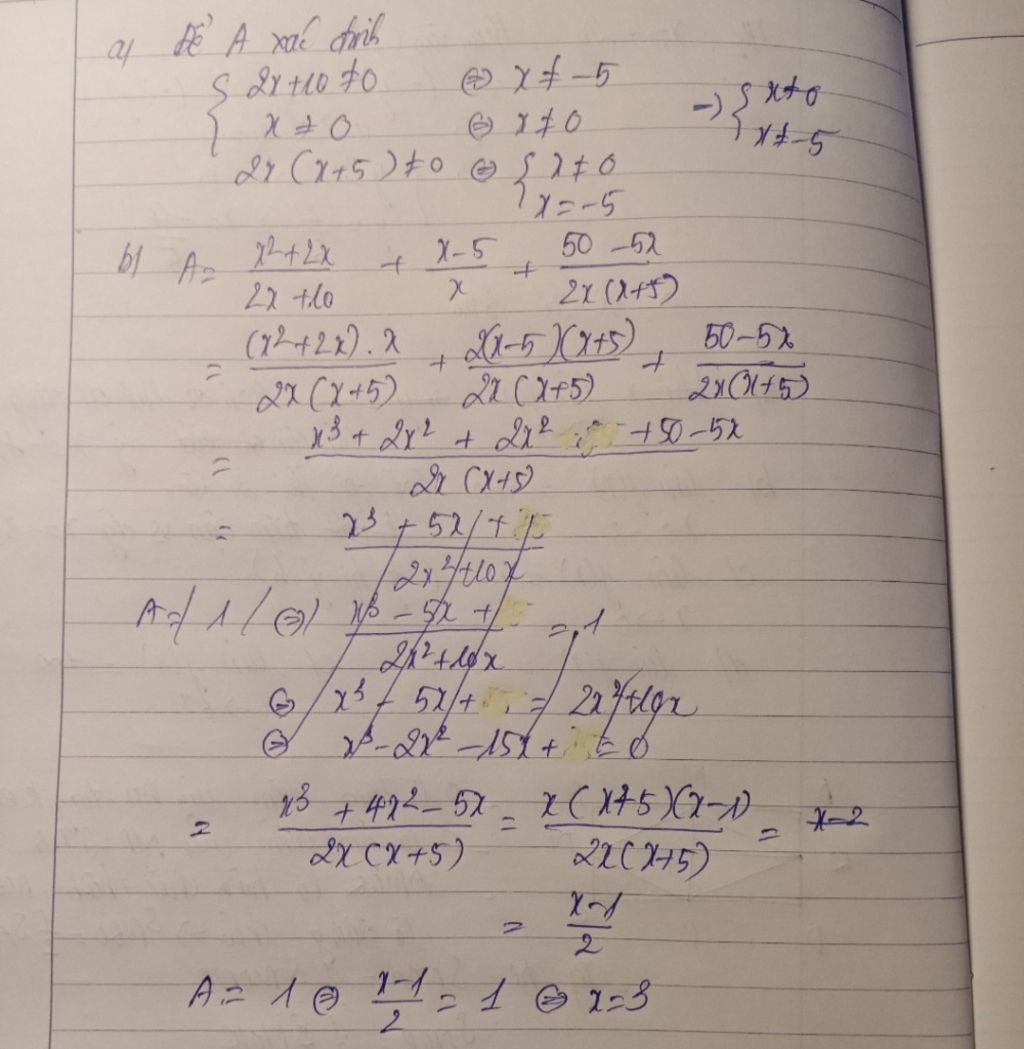 a) Để A xác định
{ 2x+10 ≠ 0 ⇔ x ≠ -5
x ≠ 0 ⇔ x ≠ 0 → { x ≠ 0
2x(x+5) ≠ 0 ⇔ { x ≠ 0 x ≠ -5
x = -5
b) A = (x²+2x)/(2x+10) + (x-5)/x + (50-5x)/(2x(x+5))
= ((x²+2x).x)/(2x(x+5)) + (2(x-5)(x+5))/(2x(x+5)) + (50-5x)/(2x(x+5))
= (x³ + 2x² + 2x² + 50 - 5x)/(2x(x+5))
= (x³ + 5x +)/(2x²+10x)
A = 1 ⇔ (x³ - 5x +)/(2x²+10x) = 1
⇔ x³ - 5x + = 2x²+10x
⇔ x³ - 2x² - 15x + = 0
= (x³ + 4x² - 5x)/(2x(x+5)) = (x(x+5)(x-1))/(2x(x+5)) = x-2
= (x-1)/2
A = 1 ⇔ (x-1)/2 = 1 ⇔ x = 3